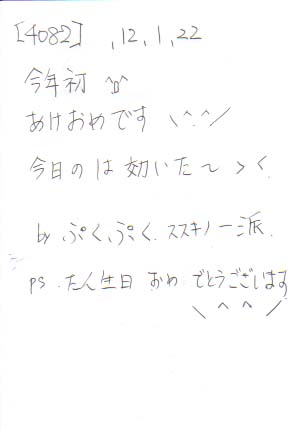 [4082] , 12, 1, 22
今年初 ^o^
あけおめです \^.^/
今日のは効いた〜 > <
by ぷく、ぷく. ススキノ一派.
PS. たん生日 おめでとうございます
\ ^ ^ /